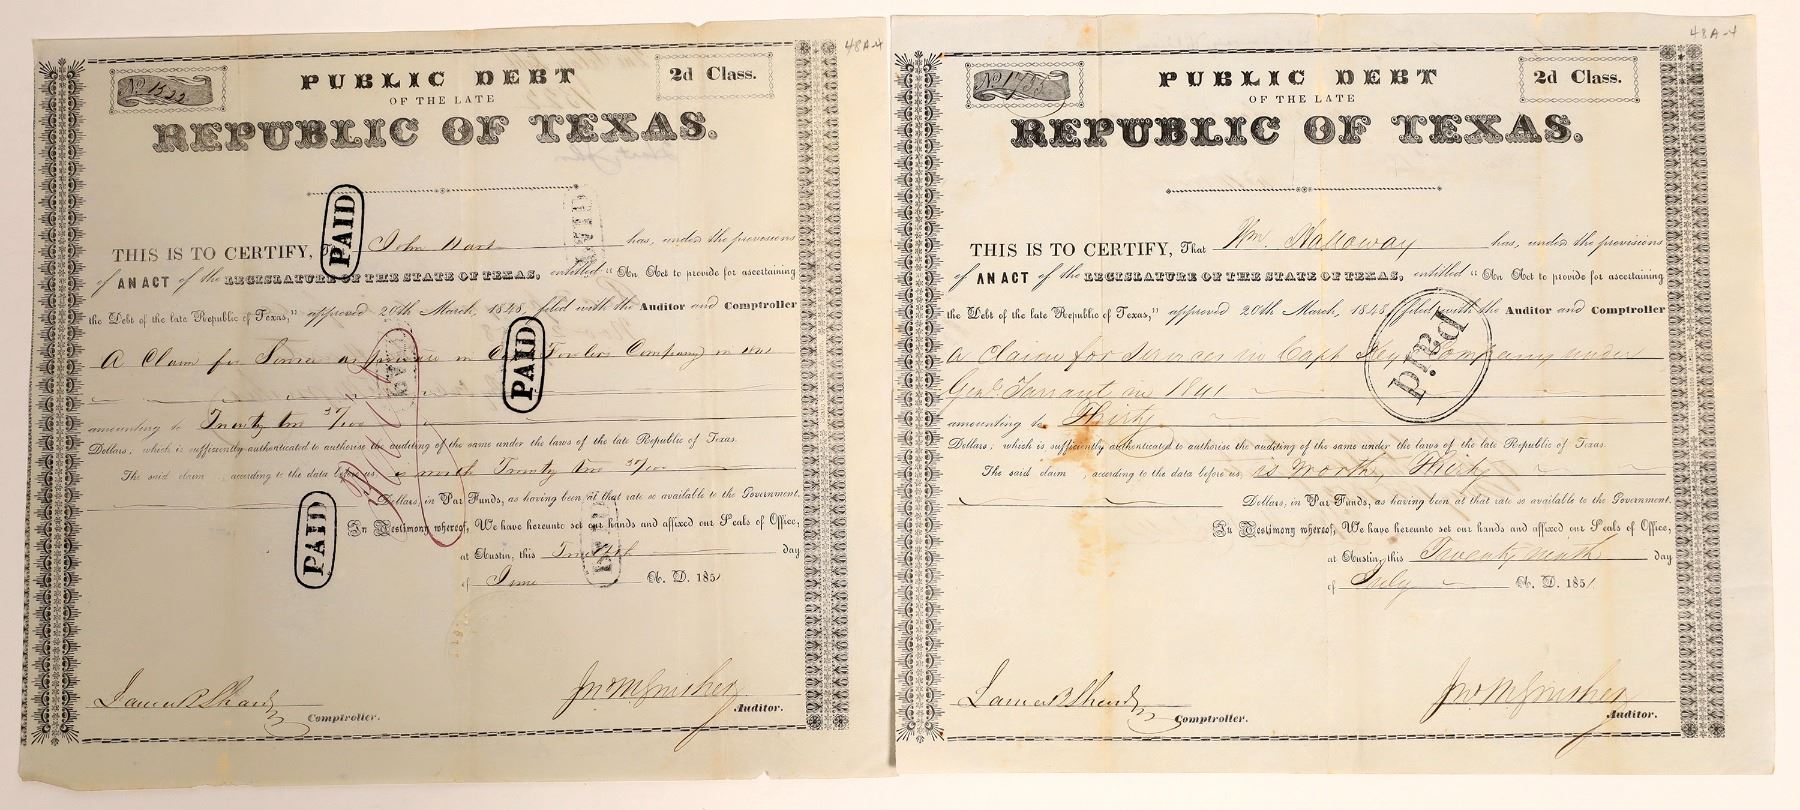 48A-4
No 1522
PUBLIC DEBT
2d Class.
OF THE LATE
REPUBLIC OF TEXAS.
THIS IS TO CERTIFY, John Hart has, under the provisions
of AN ACT of the LEGISLATURE OF THE STATE OF TEXAS, entitled "An Act to provide for ascertaining
the Debt of the late Republic of Texas," approved 20th March, 1848, filed with the Auditor and Comptroller
A Claim for Service as private in Company in 1841
amounting to Twenty two 50/100
Dollars; which is sufficiently authenticated to authorise the auditing of the same under the laws of the late Republic of Texas.
The said claim, according to the data before us, is worth Twenty two 50/100
Dollars, in Par Funds, as having been at that rate so available to the Government.
In Testimony whereof, We have hereunto set our hands and affixed our Seals of Office,
at Austin, this Twelfth day
of June A. D. 1851
James B Shaw
Comptroller.
Jno M Swisher
Auditor.
PAID
PAID
PAID
48A-4
No 1755
PUBLIC DEBT
2d Class.
OF THE LATE
REPUBLIC OF TEXAS.
THIS IS TO CERTIFY, That Wm. Halloway has, under the provisions
of AN ACT of the LEGISLATURE OF THE STATE OF TEXAS, entitled "An Act to provide for ascertaining
the Debt of the late Republic of Texas," approved 20th March, 1848, filed with the Auditor and Comptroller
a claim for services in Capt Company under
Genl. Tarrant in 1841
amounting to Thirty
Dollars; which is sufficiently authenticated to authorise the auditing of the same under the laws of the late Republic of Texas.
The said claim, according to the data before us, is worth, Thirty
Dollars, in Par Funds, as having been at that rate so available to the Government.
In Testimony whereof, We have hereunto set our hands and affixed our Seals of Office,
at Austin, this Twenty ninth day
of July A. D. 1851.
James B Shaw
Comptroller.
Jno M Swisher
Auditor.
Paid